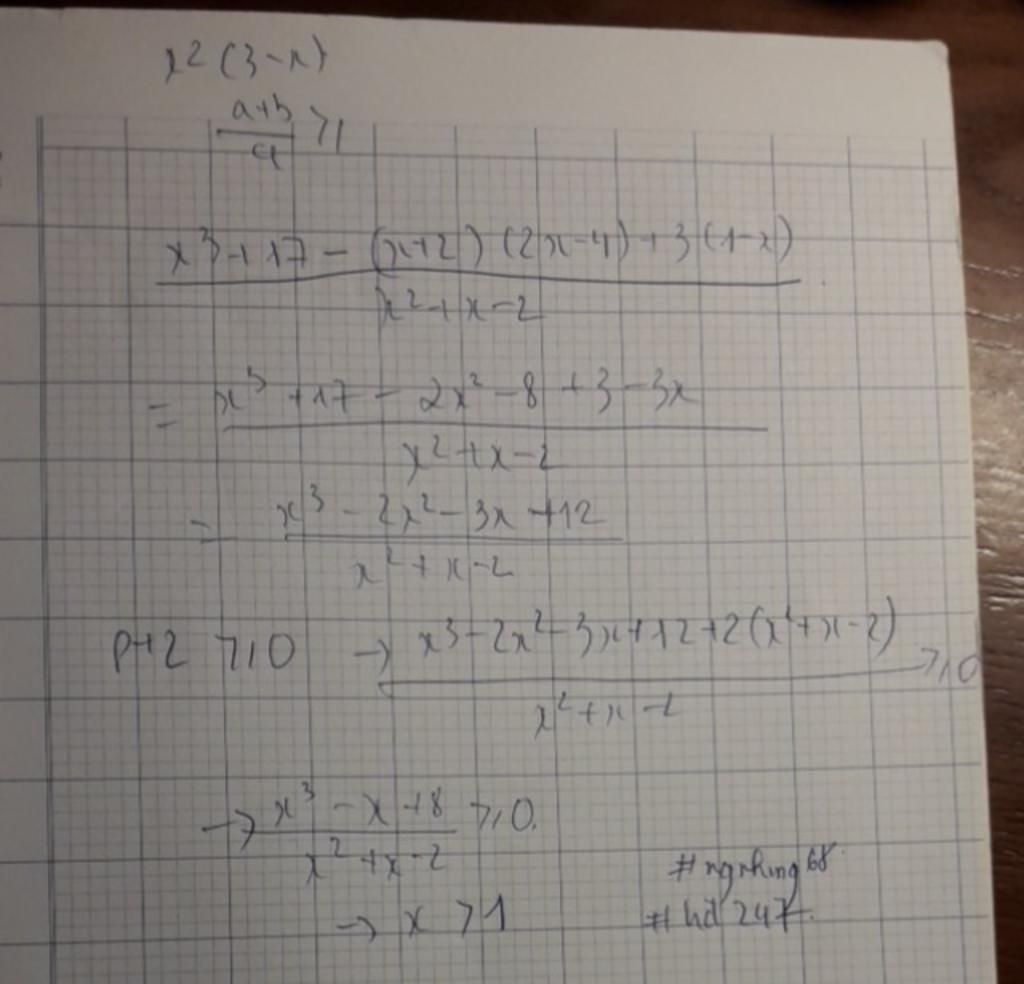 x²(3-x)
(a+b)/a > 1
(x³+17-(x+2)(2x-4)+3(1-x))/(x²+x-2)
= (x³+17-2x²-8+3-3x)/(x²+x-2)
= (x³-2x²-3x+12)/(x²+x-2)
P+2 ≥ 0 → (x³-2x²-3x+12+2(x²+x-2))/(x²+x-2) ≥ 0
→ (x³-x+8)/(x²+x-2) ≥ 0.
→ x > 1
#ngnhung68
#hd247.